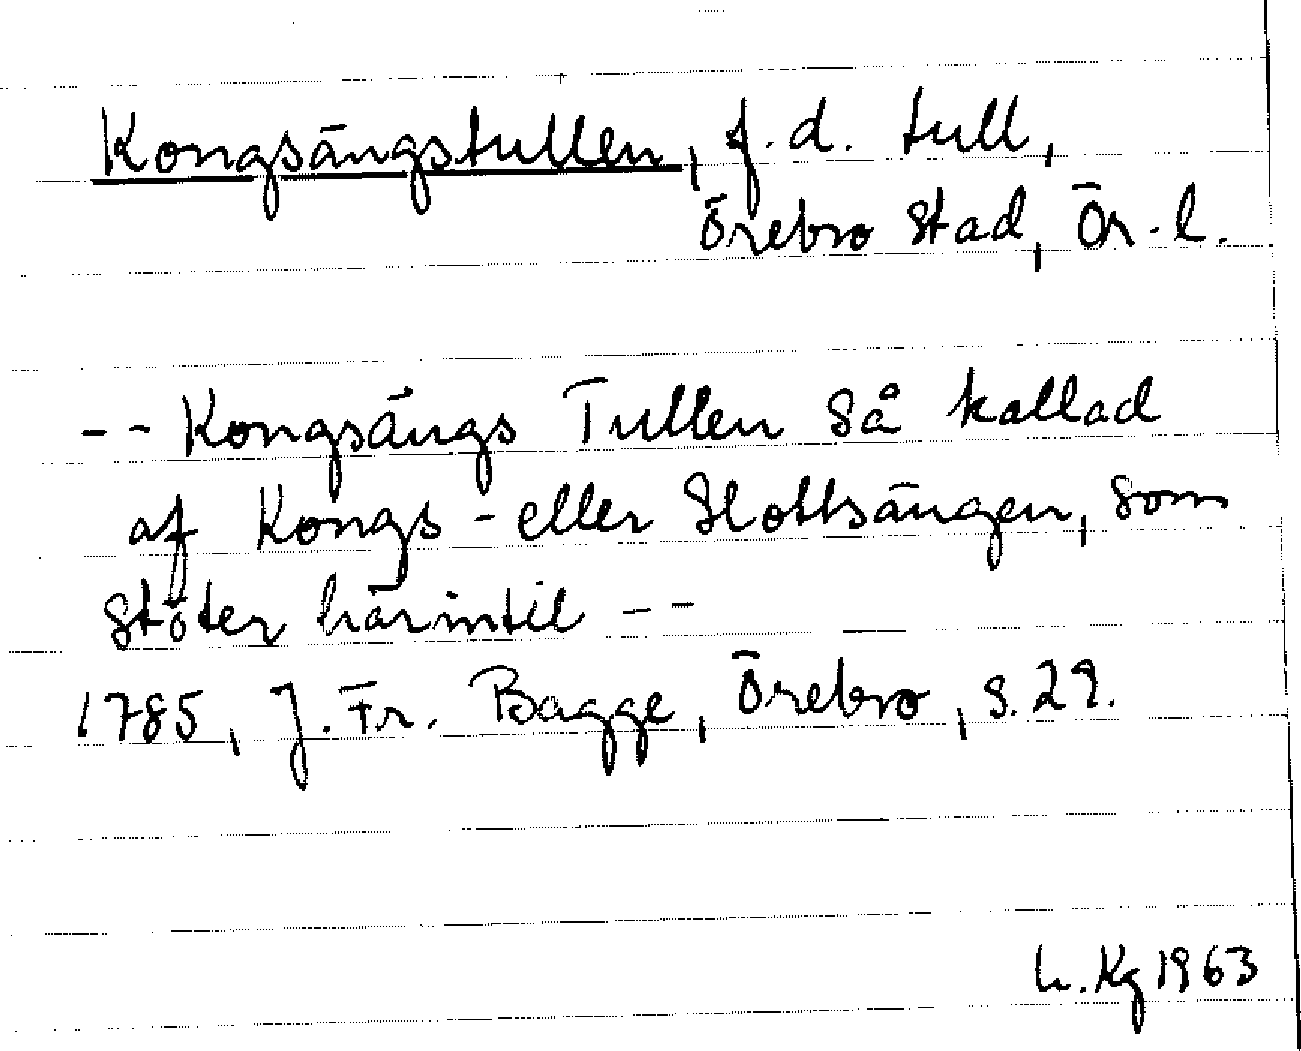 Kongsängstullen, f.d. tull,
Örebro stad, Ör.l.
-- Kongsängs Tullen så kallad
af Kongs- eller Slottsängen, som
stöter härintil --
1785, J. Fr. Bagge, Örebro, s. 29.
L. Kg 1963